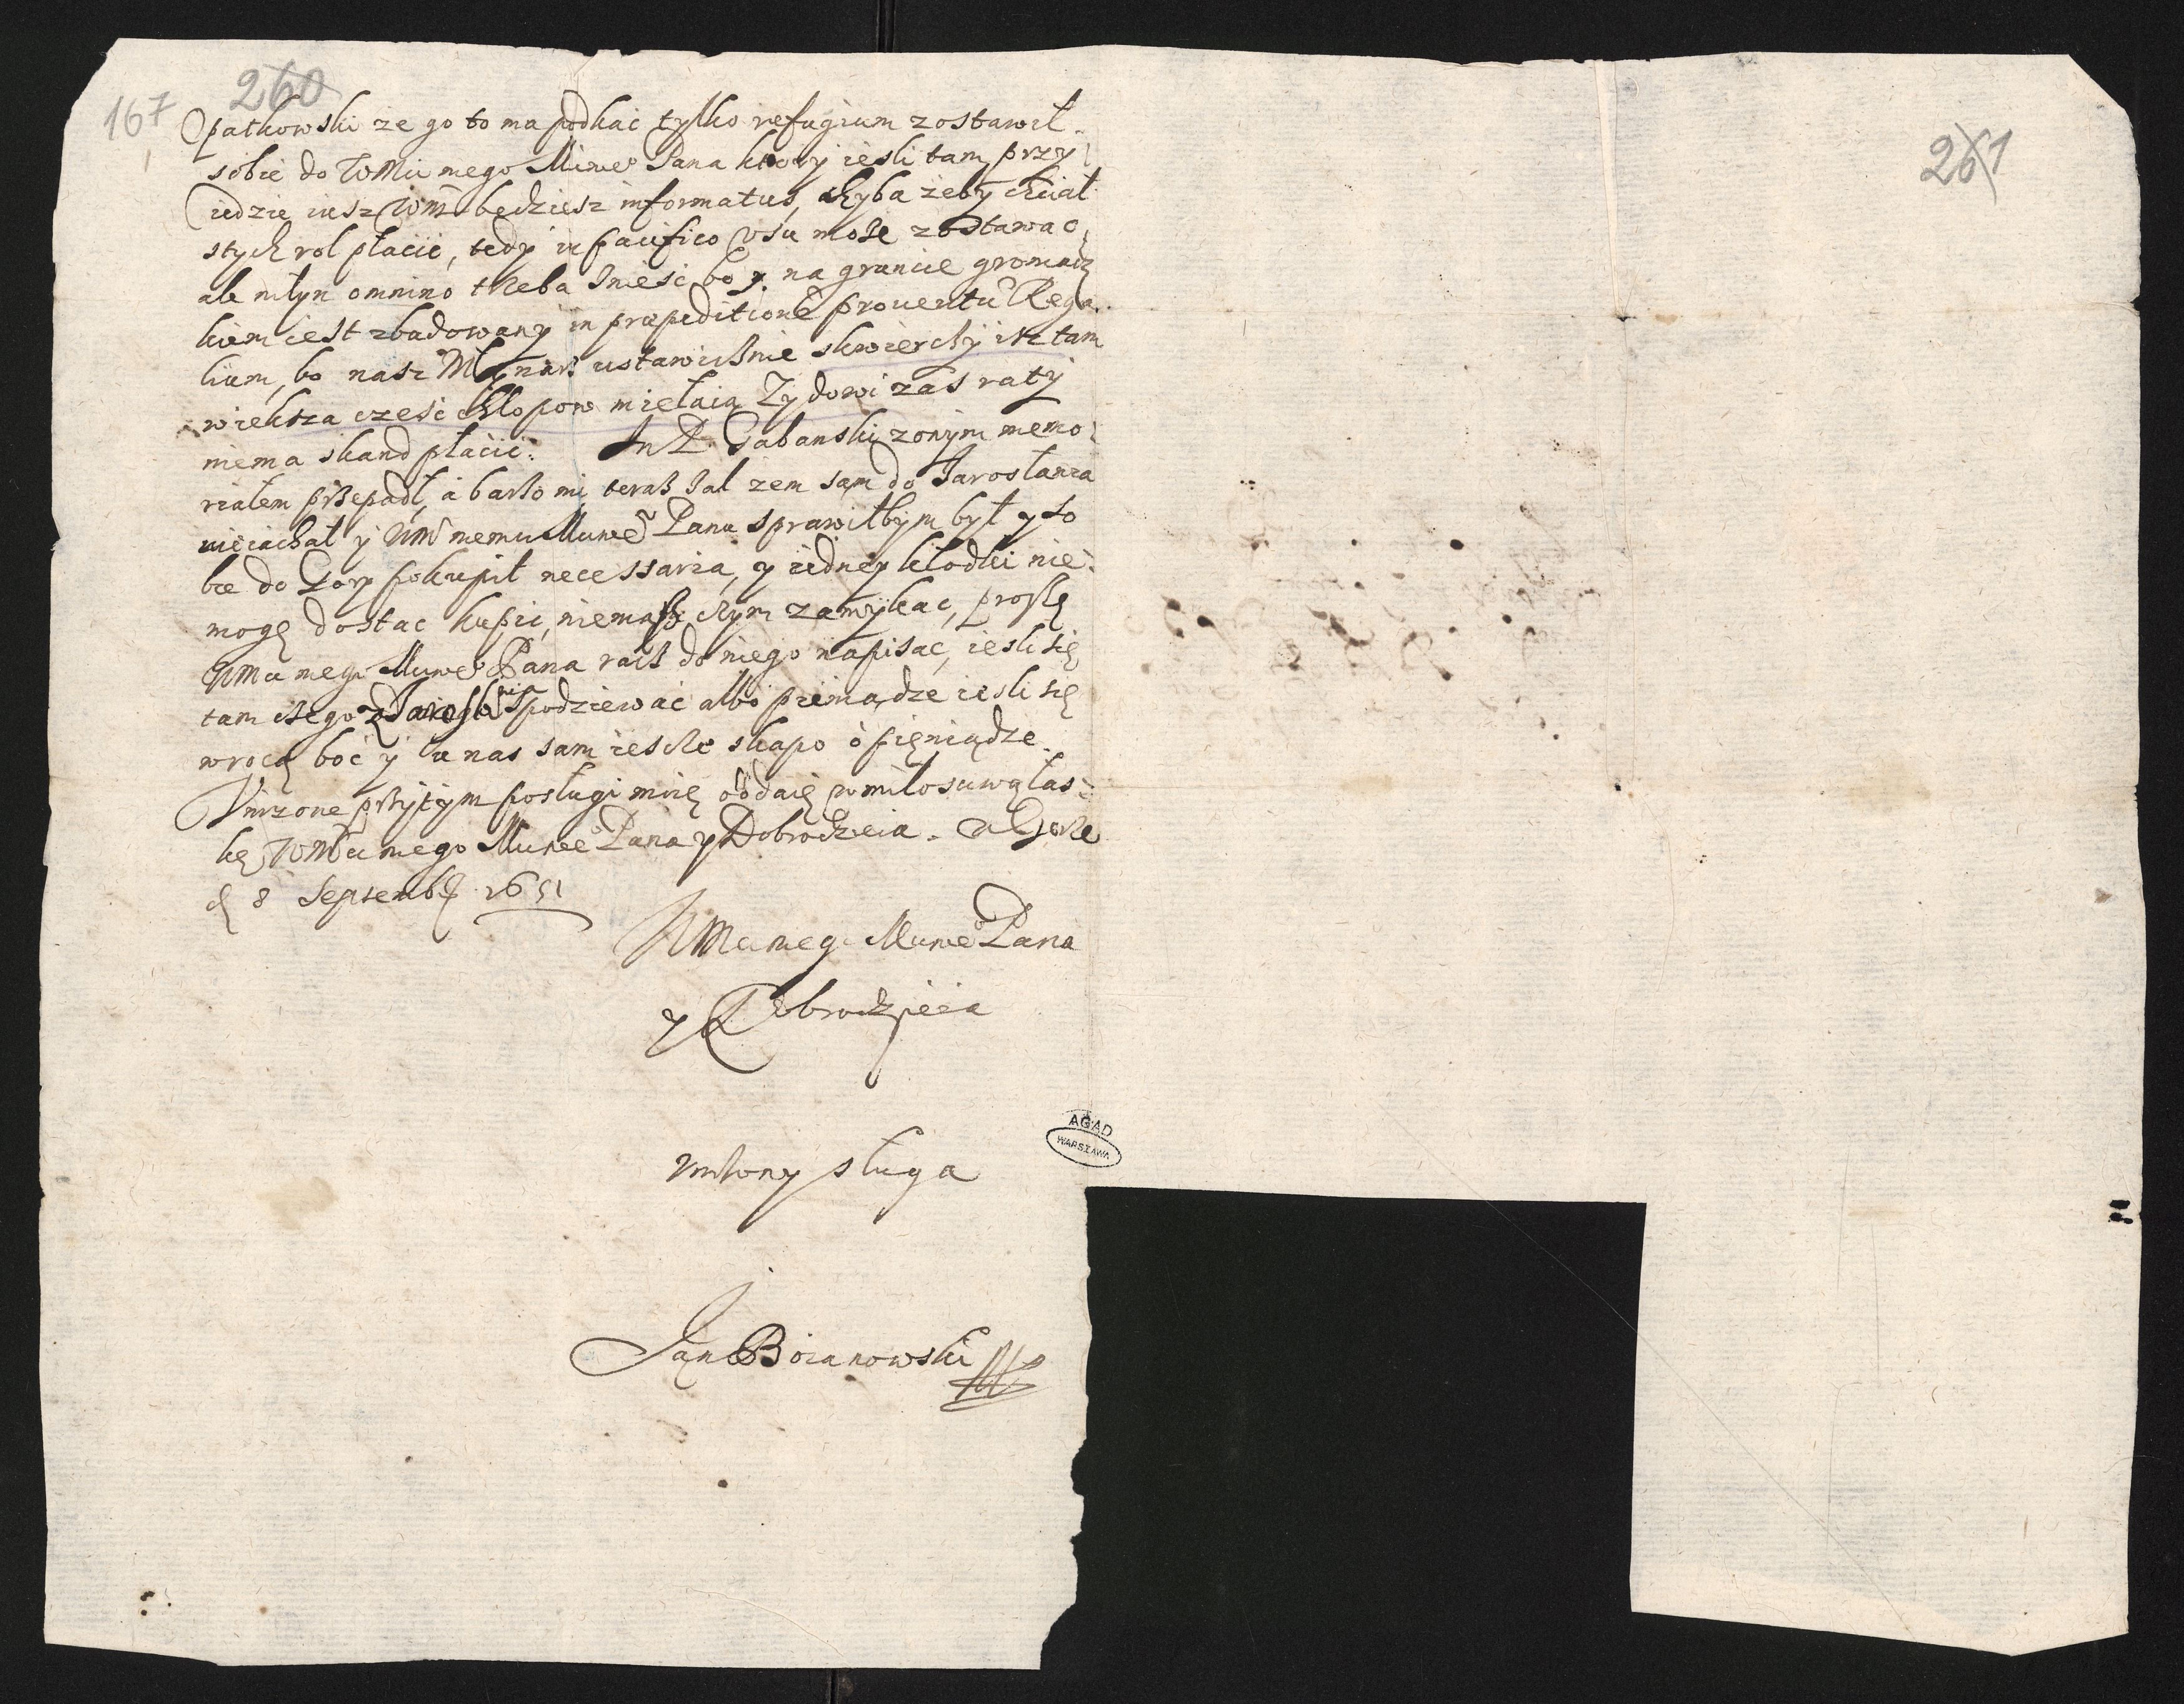 260
167
Opatkowski ze go to ma podkac tylko refugium zostawił
sobie do WMci mego Miłwe Pana ktory iesli tam przy
iedzie iusz Wm będziesz informatus, chyba zeby chciał
s tych rol płacic, tedy in pacifico usu może zostawac,
ale młyn omnino trzeba znieść bo y na gruncie gromadz
kiem iest zbudowany in praepeditione prouentu Rega
lium, bo nasz Młynarz ustawicznie skwierczy isz tam
większa część chłopow mielaią Zydowi zas raty
niema skand płacic. Im P. Gabanski z onym memo
riałem przepadł, a barzo mi teraz żal zem sam do Jarosławia
nieiachał y WM memu Miłwe Panu sprawiłbym był y so
bie do Gory pokupił necessaria, y iedney kłodki nie
mogę dostac kupic, niemasz czym zamykac, proszę
WMci mego Miłwe Pana racz do niego napisac, iesli się
tam czego z Jarosławia spodziewać albo pieniądze iesli się
wrocą boć y u nas sam ieszcze skapo o pieniądze.
Unizone przytym posługi moie oddaię w miłosciwą łas
kę WMci mego Miłwe Pana y Dobrodzieia. W Gorze
d 8 Septemb 1651
WMci mego Miłwe Pana
y Dobrodzieia
unizony sługa
Jan Boianowski
AGAD
WARSZAWA
261